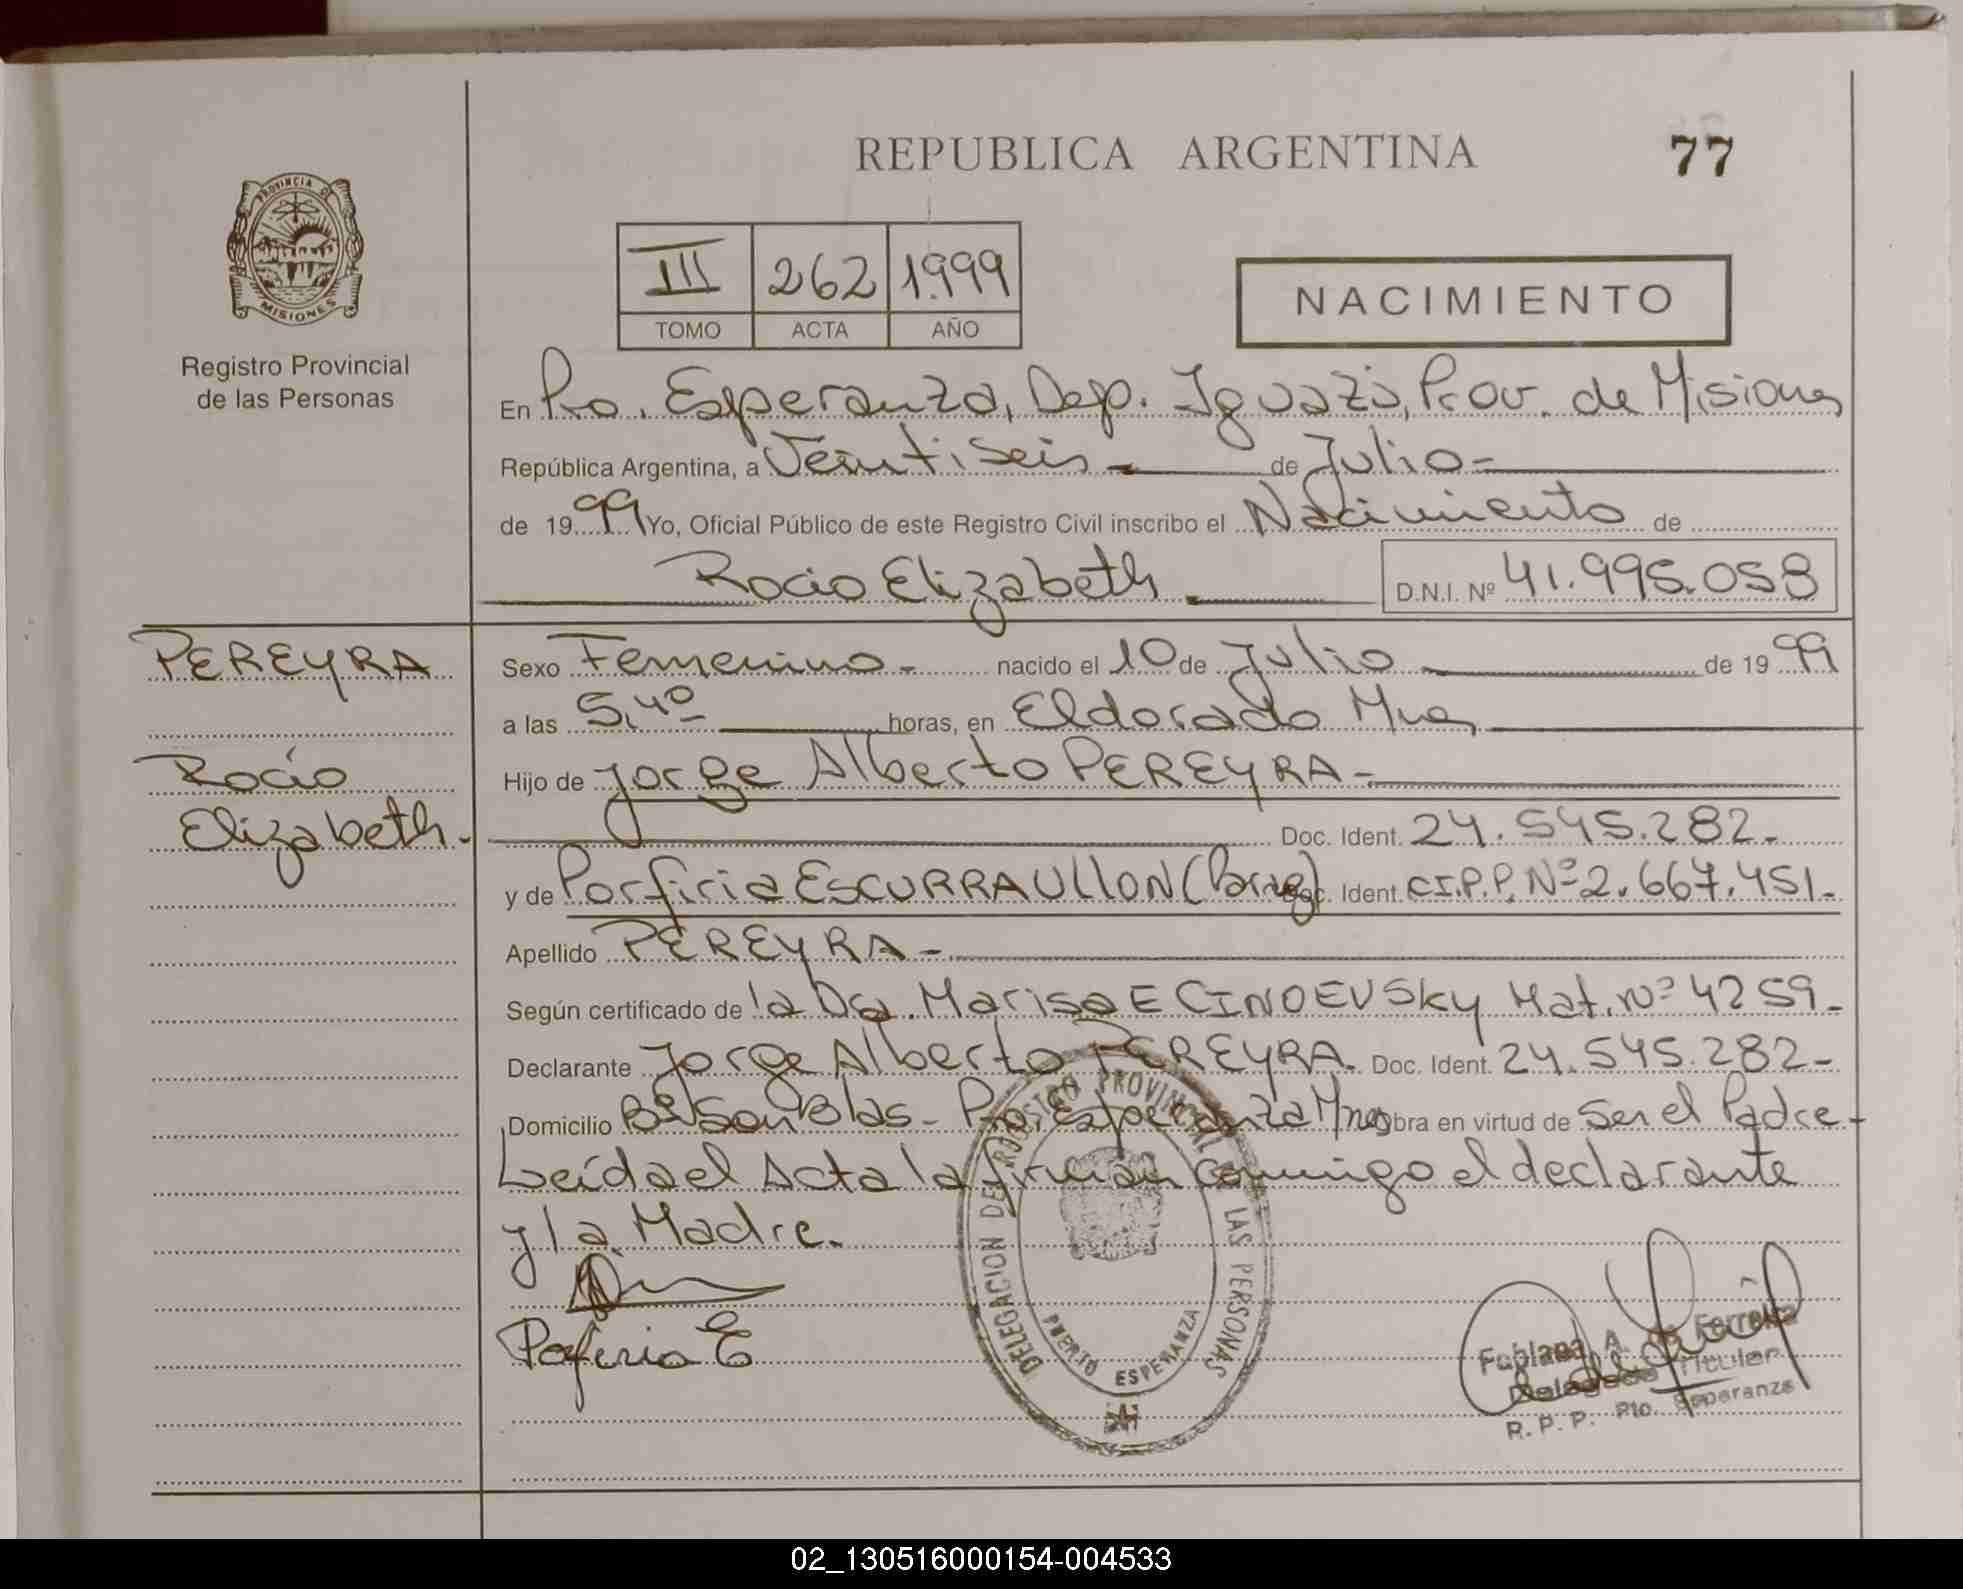 REPUBLICA ARGENTINA
77
PROVINCIA DE
MISIONES
Registro Provincial
de las Personas
III 262 1999
TOMO ACTA AÑO
NACIMIENTO
En Pto. Esperanza, Dep. Iguazú, Prov. de Misiones
República Argentina, a Veintiseis de Julio
de 1999 Yo, Oficial Público de este Registro Civil inscribo el Nacimiento de
Rocio Elizabeth
D.N.I. Nº 41.995.058
PEREYRA
Rocío
Elizabeth.
Sexo Femenino - nacido el 10 de Julio de 1999
a las 5,40 horas, en Eldorado Mnes
Hijo de Jorge Alberto PEREYRA -
Doc. Ident. 24.545.282-
y de Porfiria ESCURRA ULLON (Parag) Doc. Ident. C.I.P.P. Nº 2.667.451-
Apellido PEREYRA -
Según certificado de la Dra. Marisa E CINOEVSKY Mat. Nº 4259-
Declarante Jorge Alberto PEREYRA. Doc. Ident. 24.545.282-
Domicilio Bº San Blas - Pto. Esperanza Mnes obra en virtud de Ser el Padre-
Leída el Acta la firman conmigo el declarante
y la Madre.
Poferia E
DELEGACION DEL REGISTRO PROVINCIAL DE LAS PERSONAS
PUERTO ESPERANZA
Fabiana A. de Ferreira
Delegada Titular
R. P. P. Pto. Esperanza
02_130516000154-004533